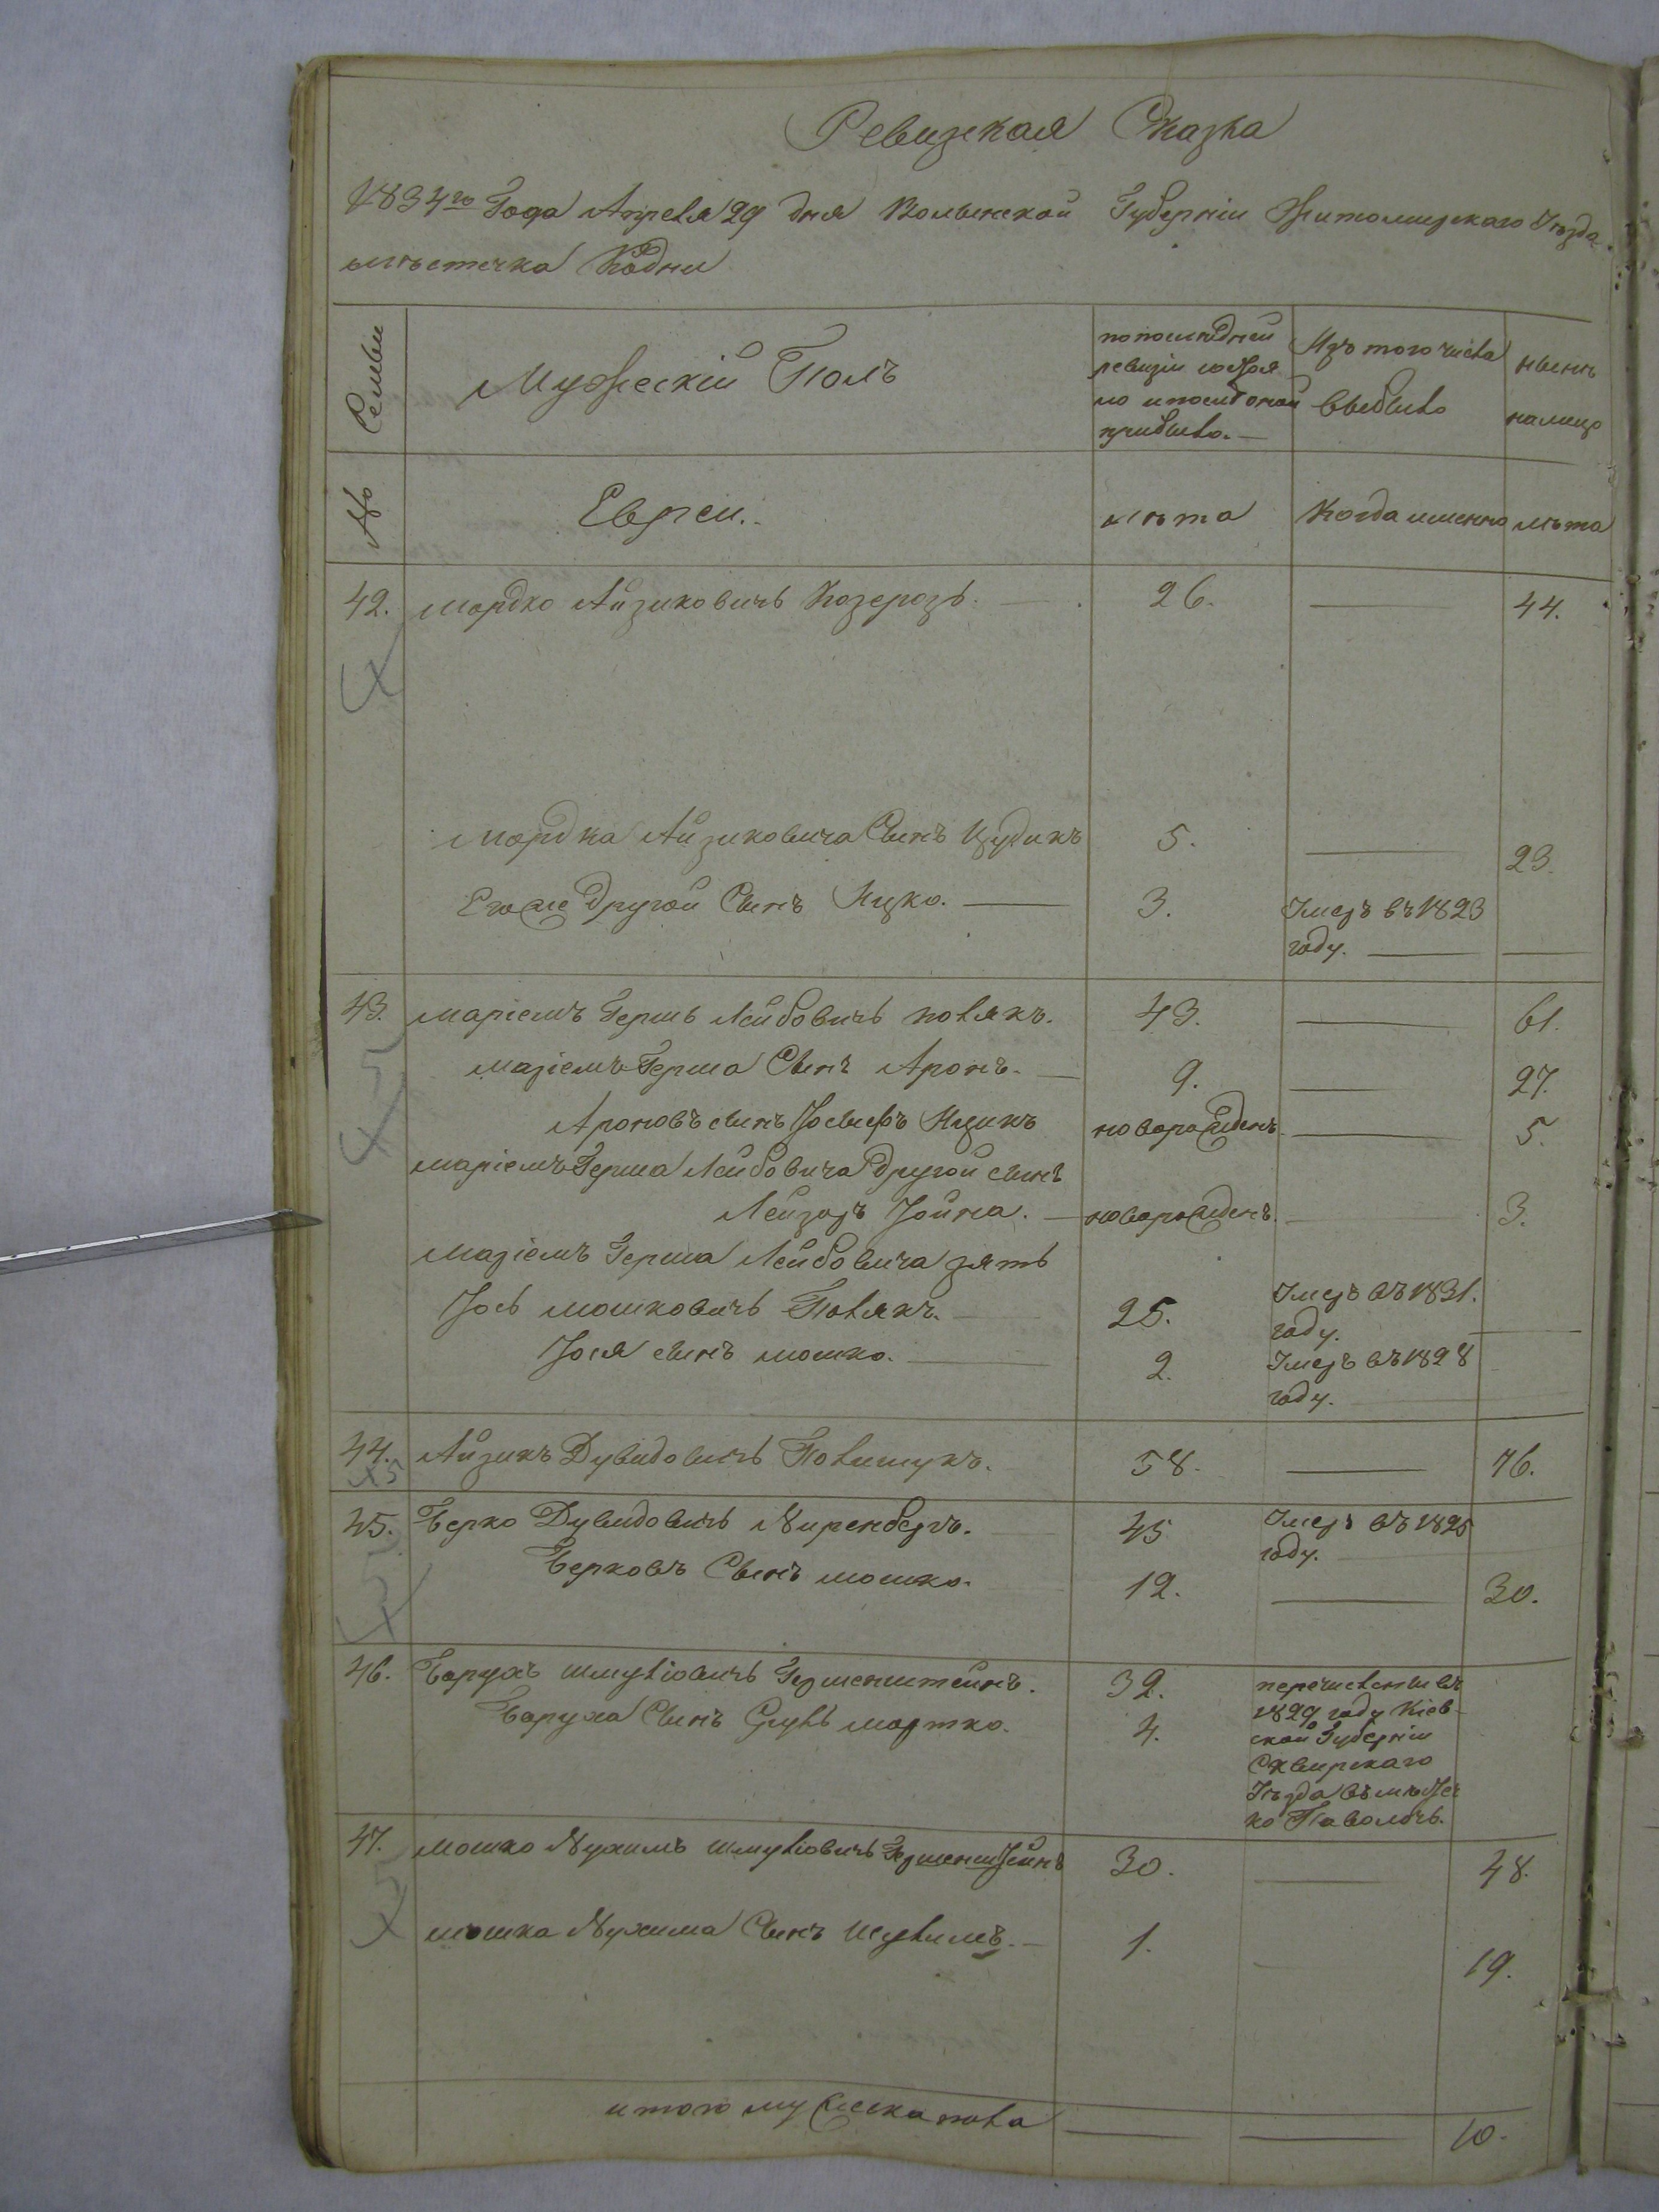 Ревизская Сказка
1834го Года Апреля 29 дня Волынской Губернiи Житомирскаго Уѣзда
мѣстечка Кодни
Семьи
Мужескiй Полъ
по последней
ревизiи состоя
ло и после оной
прибыло.
Изъ того числа
выбыло
нынѣ
налицо
№
Евреи.
лѣта
Когда именно
лѣта
42. Мордко Айзиковичь Козерозъ. 26. — 44.
Мордка Айзиковича Сынъ Цудикъ 5. — 23.
Егоже другой Сынъ Ицко. — 3. Умеръ въ 1823
году. —
43. Марiемъ Гершь Лейбовичь полякъ. 43. — 61.
Марiемъ Герша Сынъ Аронъ. — 9. — 27.
Ароновъ сынъ Iосифъ Ицикъ новорожденъ. — 5.
Марiемъ Герша Лейбовича другой сынъ
Лейзоръ Iойна. — новорожденъ. — 3.
Марiемъ Герша Лейбовича зять
Iось мошковичь Полякъ. — 25. Умеръ въ 1831.
году.
Iося сынъ мошко. — 2. Умеръ въ 1828
году.
44. Айзикъ Дувидовичь Полищукъ. 58. — 76.
х5
45. Берко Дувидовичь Ниренбергъ. 45 Умеръ въ 1825
году.
Берковъ Сынъ мошко. 12. — 30.
46. Барухъ шмулiовичь Гершенштейнъ. 32. перечислены въ
1829 году Кiев-
Баруха Сынъ Сруль мортко. 4. ской Губернiи
Сквирскаго
Уѣзда въ мѣстеч
ко Паволочь.
47. мошко Нухимъ шмулiовичь Гершенштейнъ 30. — 48.
мошка Нухима Сынъ Шулимъ. — 1. — 19.
итого мужеска пола — — 10.